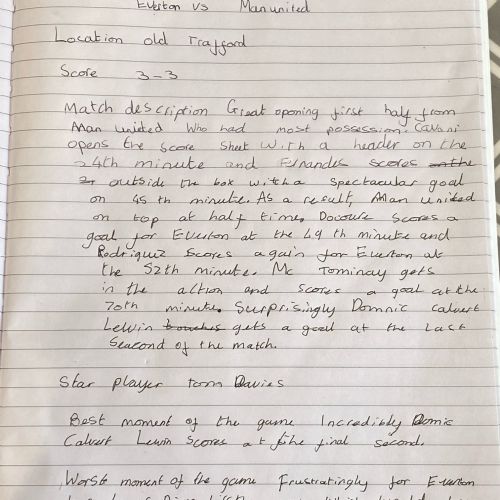 Everton vs Manunited
Location old Trafford
Score 3-3
Match description Great opening first half from
Man united who had most possession. Cavani
opens the score sheet with a header on the
24th minute and Fernandes scores on the
24 outside the box with a spectacular goal
on 45 th minute. As a result, Man united
on top at half time. Docoure scores a
goal for Everton at the 49 th minute and
Rodriguez scores again for Everton at
the 52th minute. Mc Tominay gets
in the action and scores a goal at the
70th minute. Surprisingly Domnic calvert
Lewin touches gets a goal at the last
Seacond of the match.
Star player tom Davies
Best moment of the game Incredibly Domic
Calvert Lewin scores at the final second.
Worst moment of the game Frustratingly for Everton